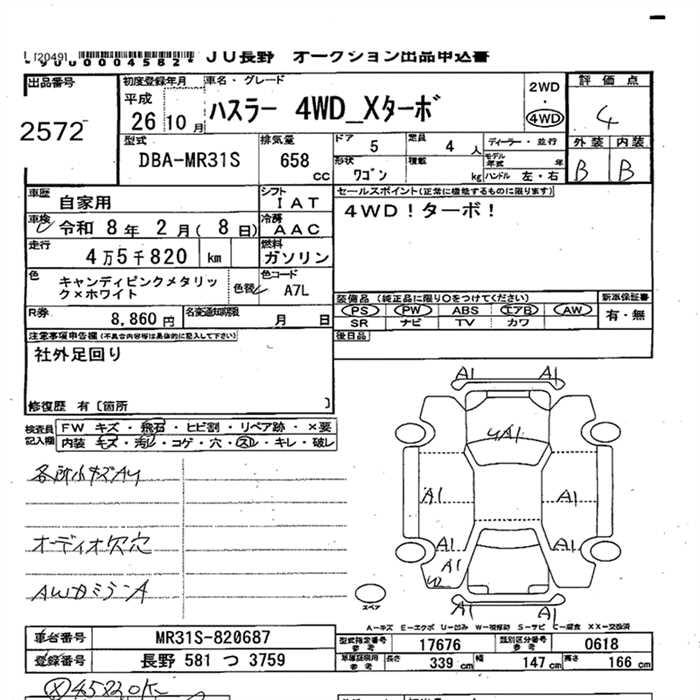 [20491
*yuu0004582* JU長野 オークション出品申込書
出品番号 初度登録年月 車名・グレード 2WD 評価点
2572 平成 26 10月 ハスラー 4WD_Xターボ ・ 4WD 4
型式 排気量 ドア 5 定員 4人 ディーラー・並行 外装 内装
DBA-MR31S 658 cc 形状 ワゴン 積載 kg モデル年式 年 ハンドル 左・右 B B
車歴 自家用 シフト IAT セールスポイント(正常に機能するものに限ります)
車検 令和 8年 2月(8日) 冷房 AAC 4WD!ターボ!
走行 4万5千820 km 燃料 ガソリン
色 キャンディピンクメタリック×ホワイト 色替 色コード A7L
装備品(純正品に限り○をつけてください) 新車保証書
R券 8,860円 名変通知期限 月 日 PS PW ABS エアB AW 有・無
SR ナビ TV カワ
注意事項申告欄(不具合内容等は具体的に記入して下さい) 後日品
社外足回り
修復歴 有〔箇所 〕
検査員記入欄 FW キズ・飛石・ヒビ割・リペア跡・×要
内装 キズ・汚レ・コゲ・穴・スレ・キレ・破レ
A1 A1
UA1
各所小キズAU
A1 A1 A1
オーディオ欠穴
A1 A1
A1
AWカミランA
スペア A1 A1
A-キズ E-エクボ U-凹み W-補修跡 S-サビ C-腐食 XX-交換済
車台番号 MR31S-820687 型式指定番号 参考 17676 類別区分番号 参考 0618
登録番号 長野 581 つ 3759 車庫証明用 参考 長さ 339cm 幅 147cm 高さ 166cm